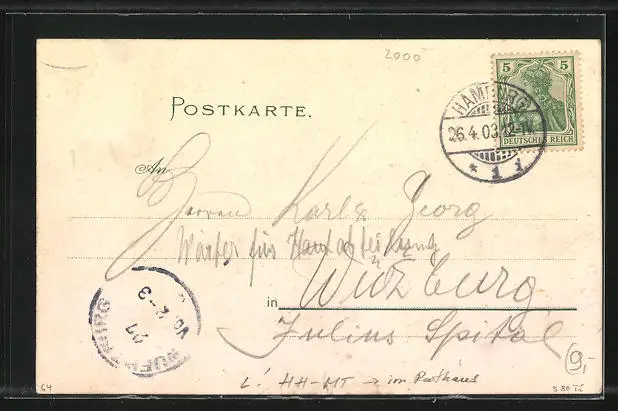 2000
POSTKARTE.
5 5
DEUTSCHES REICH
HAMBURG
26.4.03.12-1N.
* 1 i
An
Herren Karl & Georg
Wärter für Hautabteilung
in Würzburg
Julius Spital
WUERZBURG
27
VO. 2-3
9,-
64
L! HH-MT → im Rathaus